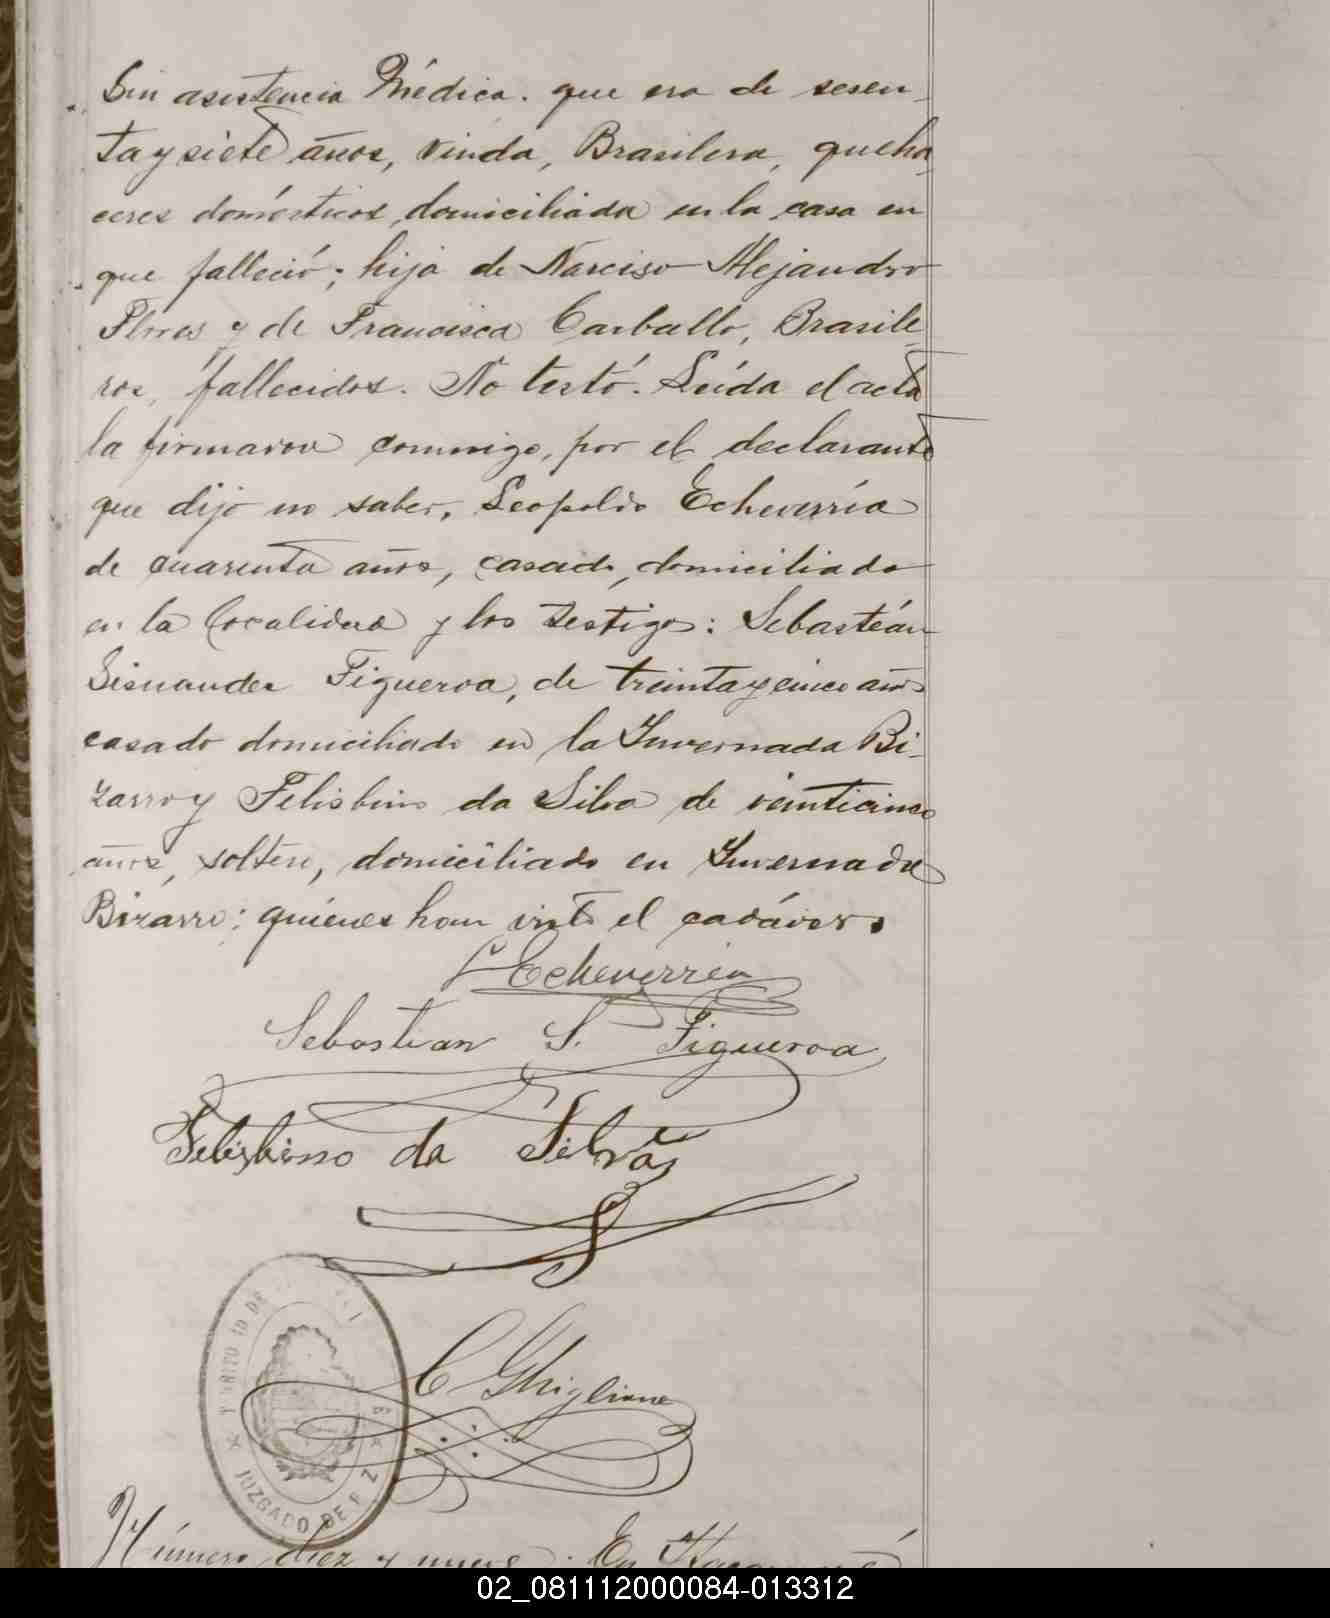 Sin asistencia Médica. que era de sesen-
ta y siete años, viuda, Brasilera, queha-
ceres domésticos, domiciliada en la casa en
que falleció; hija de Narciso Alejandro
Flores y de Francisca Carballo, Brasile-
ros, fallecidos. No testó. Leída el acta
la firmaron conmigo, por el declarante
que dijo no saber, Leopoldo Echeverría
de cuarenta años, casado, domiciliado
en la localidad y los testigos: Sebastián
Sisnandes Figueroa, de treinta y cinco años
casado domiciliado en la Invernada Bi-
zarro y Felisbino da Silva de veinticinco
años, soltero, domiciliado en Invernada
Bizarro; quienes han visto el cadáver.
L Echeverría
Sebastian S. Figueroa
Felisbino da Silva
C Ghiglione
JUZGADO DE PAZ
Número diez y nueve. En
02_081112000084-013312